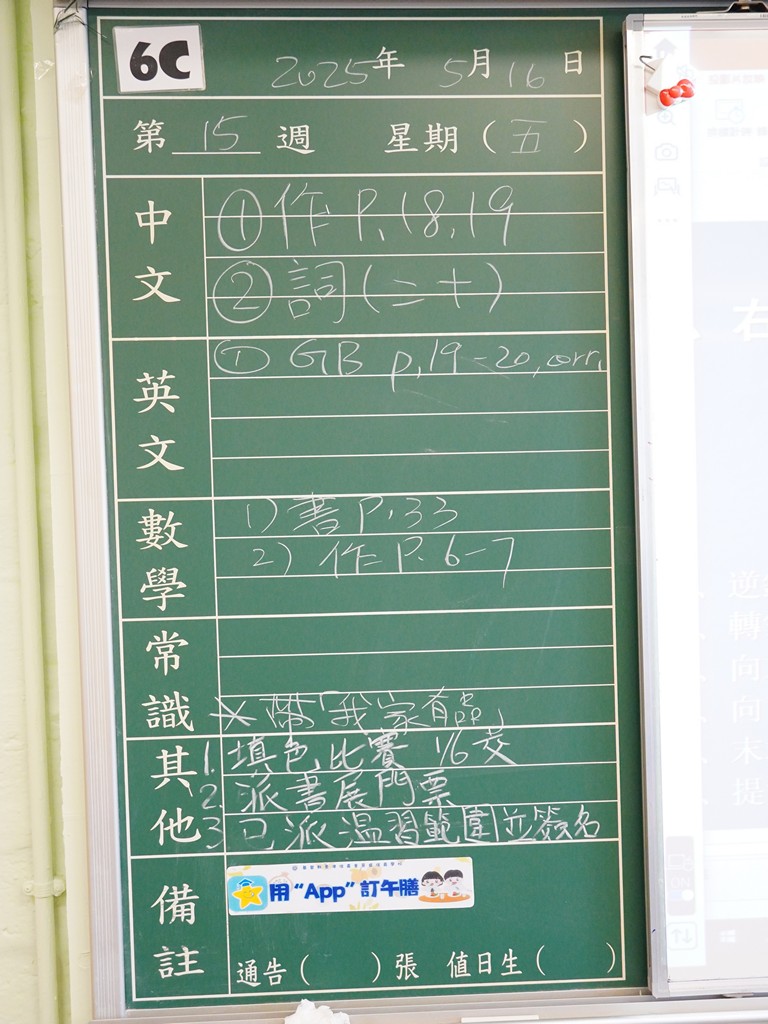 6C
2025年 5月16日
第 15 週 星期(五)
中文
①作P.18,19
②詞(二十)
英文
① GB p.19-20,corr.
數學
1) 書P.33
2) 作P.6-7
常識
※帶「我家有品」
其他
1. 填色比賽 1/6交
2. 派書展門票
3 已派溫習範圍並簽名
備註
用“App”訂午膳
通告( )張 值日生( )
右
逆
轉
向
向
末
提